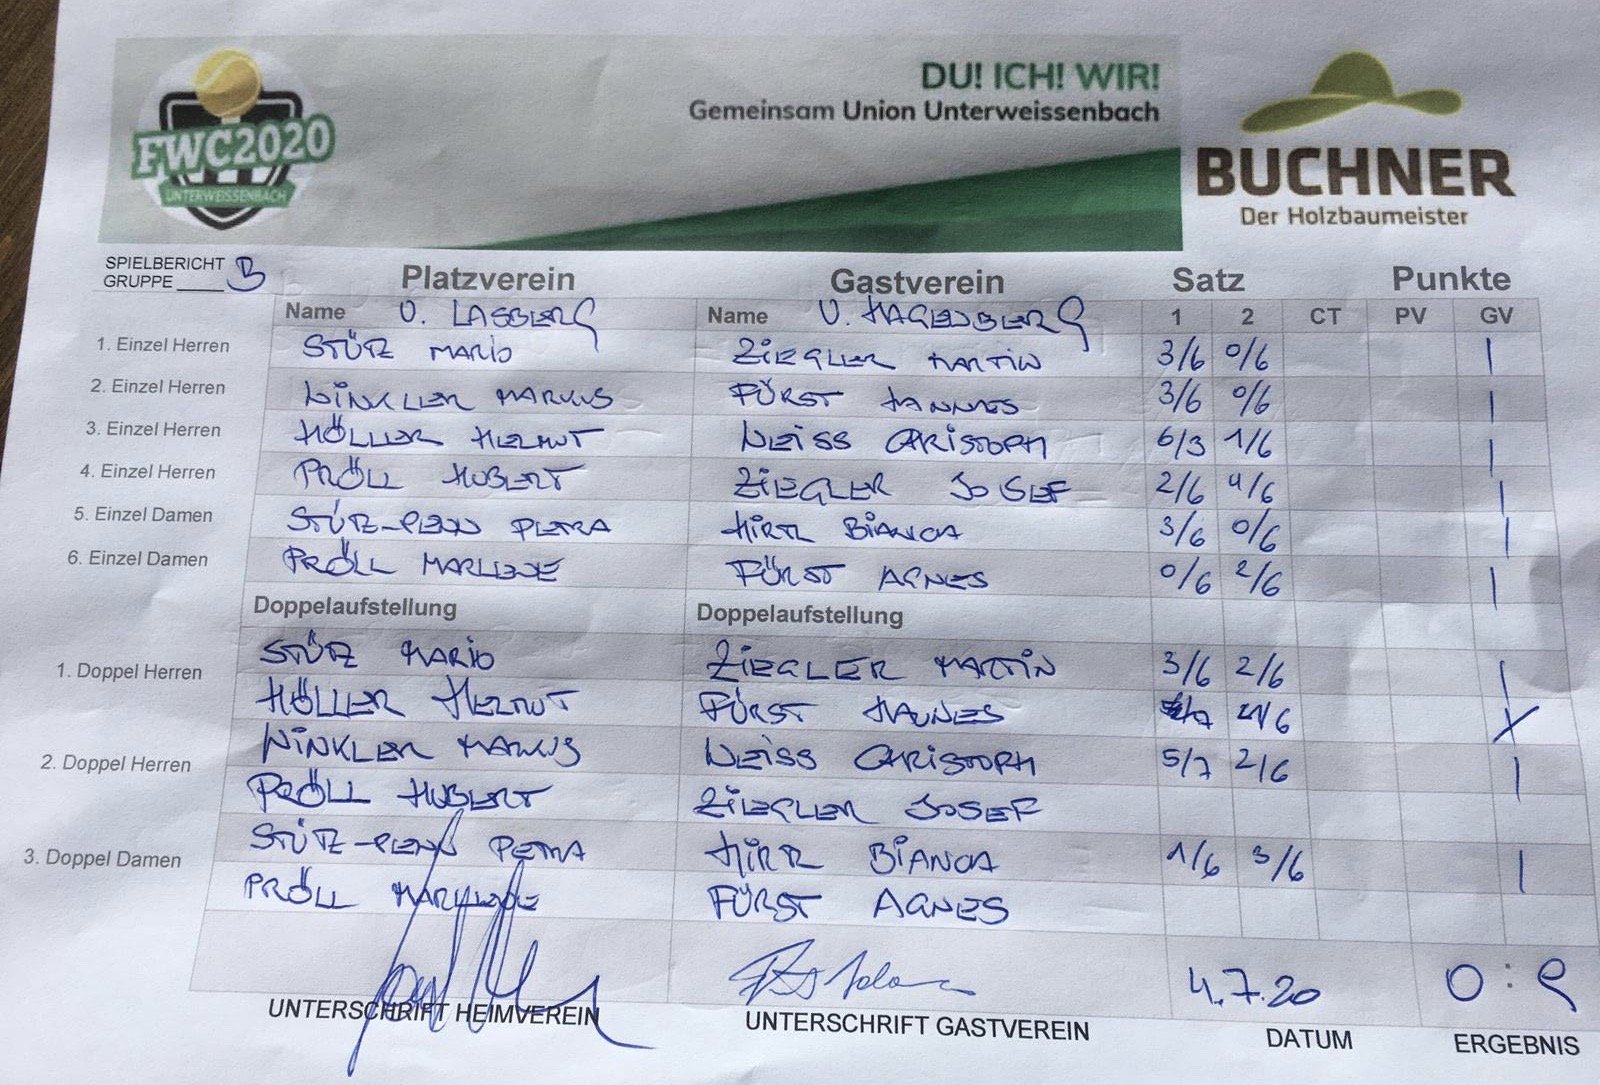 DU! ICH! WIR!
Gemeinsam Union Unterweissenbach
FWC2020
UNTERWEISSENBACH
BUCHNER
Der Holzbaumeister
SPIELBERICHT
GRUPPE ____ B
Platzverein Gastverein Satz Punkte
Name U. LASBERG Name U. HAGENBERG 1 2 CT PV GV
1. Einzel Herren STÜTZ MARIO ZIEGLER MARTIN 3/6 0/6 |
2. Einzel Herren WINKLER MARKUS FÜRST HANNES 3/6 0/6 |
3. Einzel Herren HÖLLER HELMUT WEISS CHRISTOPH 6/3 1/6 |
4. Einzel Herren PRÖLL HUBERT ZIEGLER JOSEF 2/6 4/6 |
5. Einzel Damen STÜTZ-PENN PETRA HIRTL BIANCA 3/6 0/6 |
6. Einzel Damen PRÖLL MARLENE FÜRST AGNES 0/6 2/6 |
Doppelaufstellung Doppelaufstellung
1. Doppel Herren STÜTZ MARIO ZIEGLER MARTIN 3/6 2/6 |
HÖLLER HELMUT FÜRST HANNES
2. Doppel Herren WINKLER MARKUS WEISS CHRISTOPH 5/7 2/6 |
PRÖLL HUBERT ZIEGLER JOSEF
3. Doppel Damen STÜTZ-PENN PETRA BIANCA 1/6 3/6 |
PRÖLL MARLENE FÜRST AGNES
4.7.20 0:9
UNTERSCHRIFT HEIMVEREIN UNTERSCHRIFT GASTVEREIN DATUM ERGEBNIS